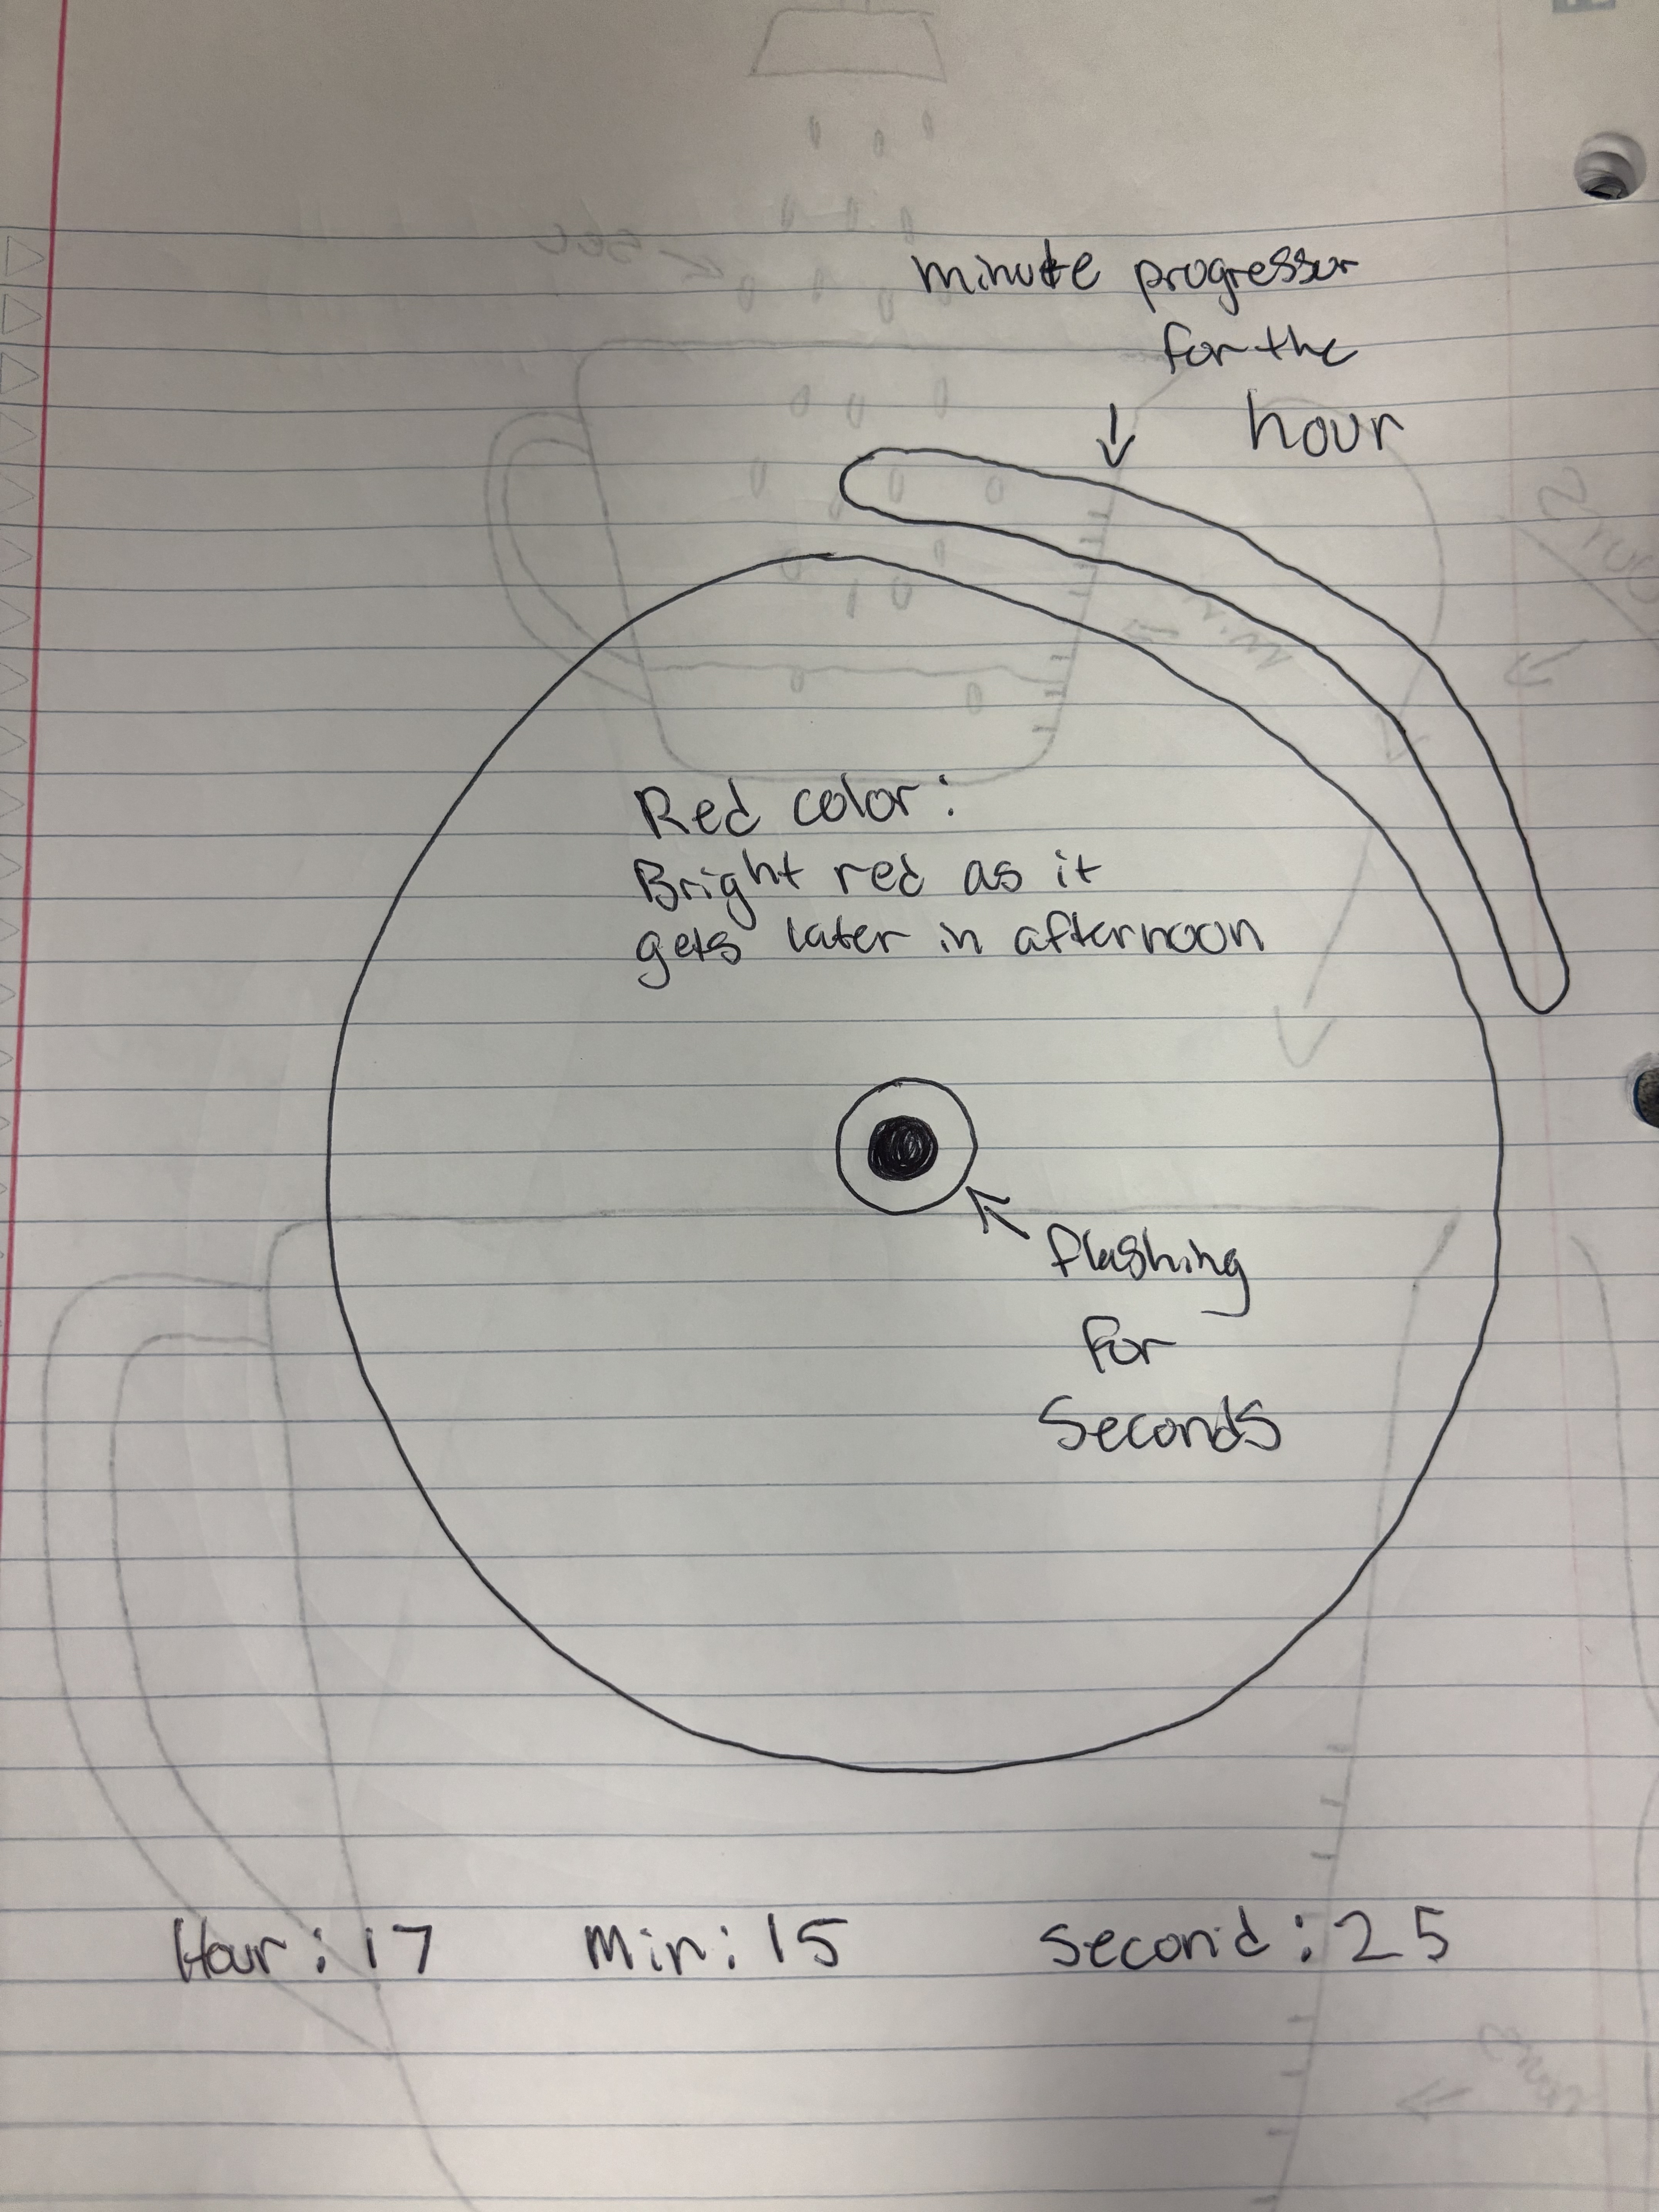 minute progressor
for the
hour
Red color:
Bright red as it
gets later in afternoon
flashing
for
Seconds
Hour: 17 Min: 15 Second: 25